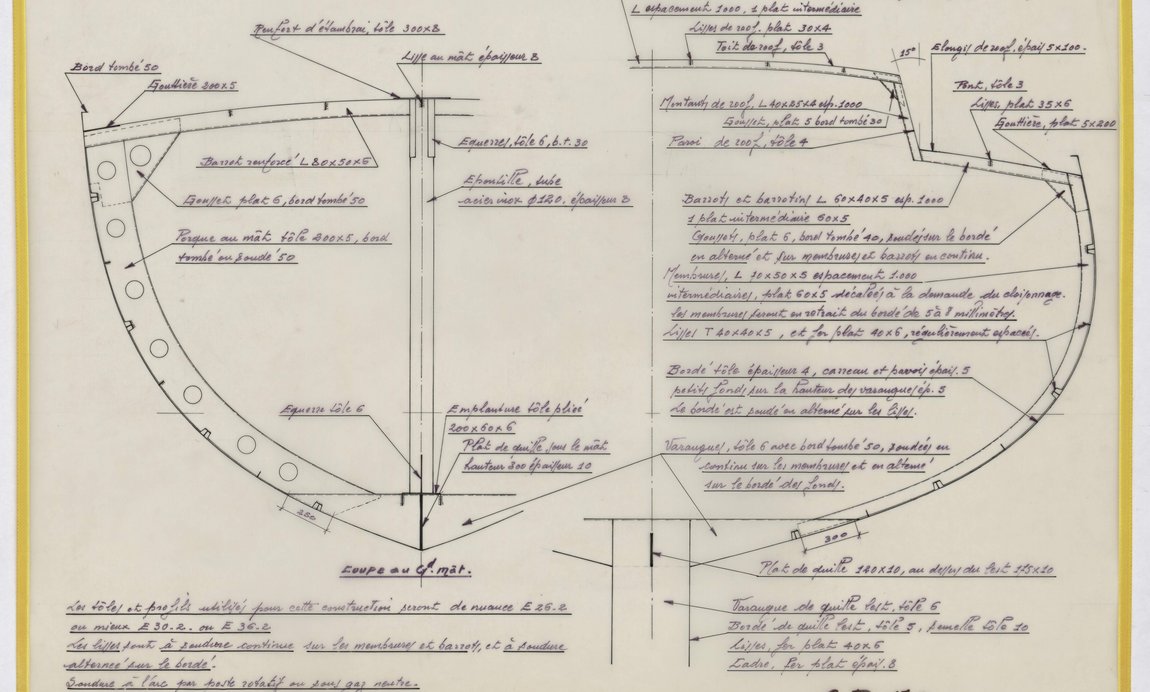 Renfort d'étambrai, tôle 300x8
Lisse au mât épaisseur 8
Bord tombé 50
Gouttière 200x5
Barrot renforcé L 80x50x6
Equerres, tôle 6, b.t. 30
Epontille, tube
acier inox φ 120, épaisseur 8
Gousset plat 6, bord tombé 50
Porque au mât tôle 200x5, bord
tombé ou soudé 50
Equerre tôle 6
Emplanture tôle pliée
200x60x6
Plat de quille sous le mât
hauteur 300 épaisseur 10
250
COUPE AU Gd. mât.
L espacement 1000, 1 plat intermédiaire
Lisses de roof, plat 30x4
Toit de roof, tôle 3
15°
Elongis de roof, épais 5x100.
Pont, tôle 3
Lisses, plat 35x6
Gouttière, plat 5x200
Montants de roof, L 40x25x4 esp. 1000
Gousset, plat 5 bord tombé 30
Paroi de roof, tôle 4
Barrots et barrotins L 60x40x5 esp. 1000
1 plat intermédiaire 60x5
Goussets, plat 6, bord tombé 40, soudés sur le bordé
en alterné et sur membrures et barrots en continu.
Membrures, L 70x50x5 espacement 1.000
intermédiaires, plat 60x5 décalées à la demande du cloisonnage.
Les membrures seront en retrait du bordé de 5 à 8 millimètres.
Lisses T 40x40x5, et fer plat 40x6, régulièrement espacées.
Bordé tôle épaisseur 4, carreau et pavois épais. 5
petits fonds sur la hauteur des varangues ép. 5
Le bordé est soudé en alterné sur les lisses.
Varangues, tôle 6 avec bord tombé 50, soudées en
continu sur les membrures et en alterné
sur le bordé des fonds.
300
Plat de quille 140x10, au dessus du lest 175x10
Varangue de quille lest, tôle 6
Bordé de quille lest, tôle 5, semelle tôle 10
Lisses, fer plat 40x6
Cadre, fer plat épais. 8
Les tôles et profils utilisés pour cette construction seront de nuance E 26.2
ou mieux E 30.2. ou E 36.2
Les lisses sont à soudure continue sur les membrures et barrots, et à soudure
alternée sur le bordé.
Soudure à l'arc par poste rotatif ou sous gaz neutre.